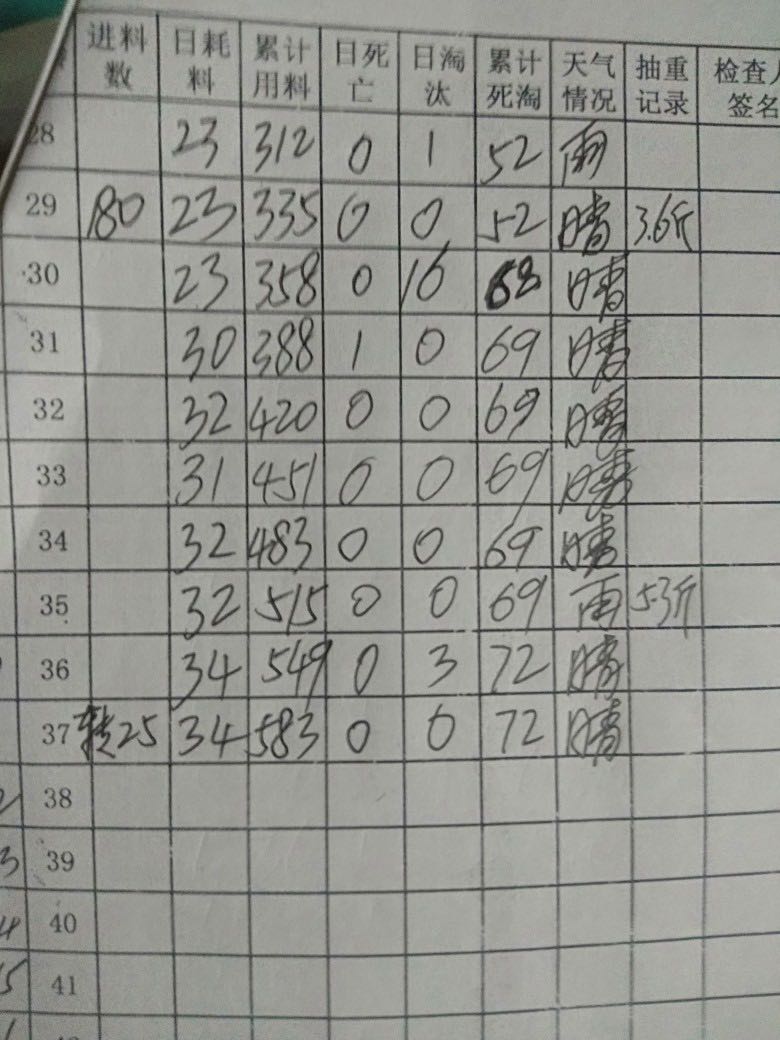 进料数 日耗料 累计用料 日死亡 日淘汰 累计死淘 天气情况 抽重记录 检查人签名
28 23 312 0 1 52 雨
29 180 23 335 0 0 52 晴 3.6斤
30 23 358 0 16 68 晴
31 30 388 1 0 69 晴
32 32 420 0 0 69 晴
33 31 451 0 0 69 晴
34 32 483 0 0 69 晴
35 32 515 0 0 69 雨 5.3斤
36 34 549 0 3 72 晴
37 转25 34 583 0 0 72 晴
38
39
40
41